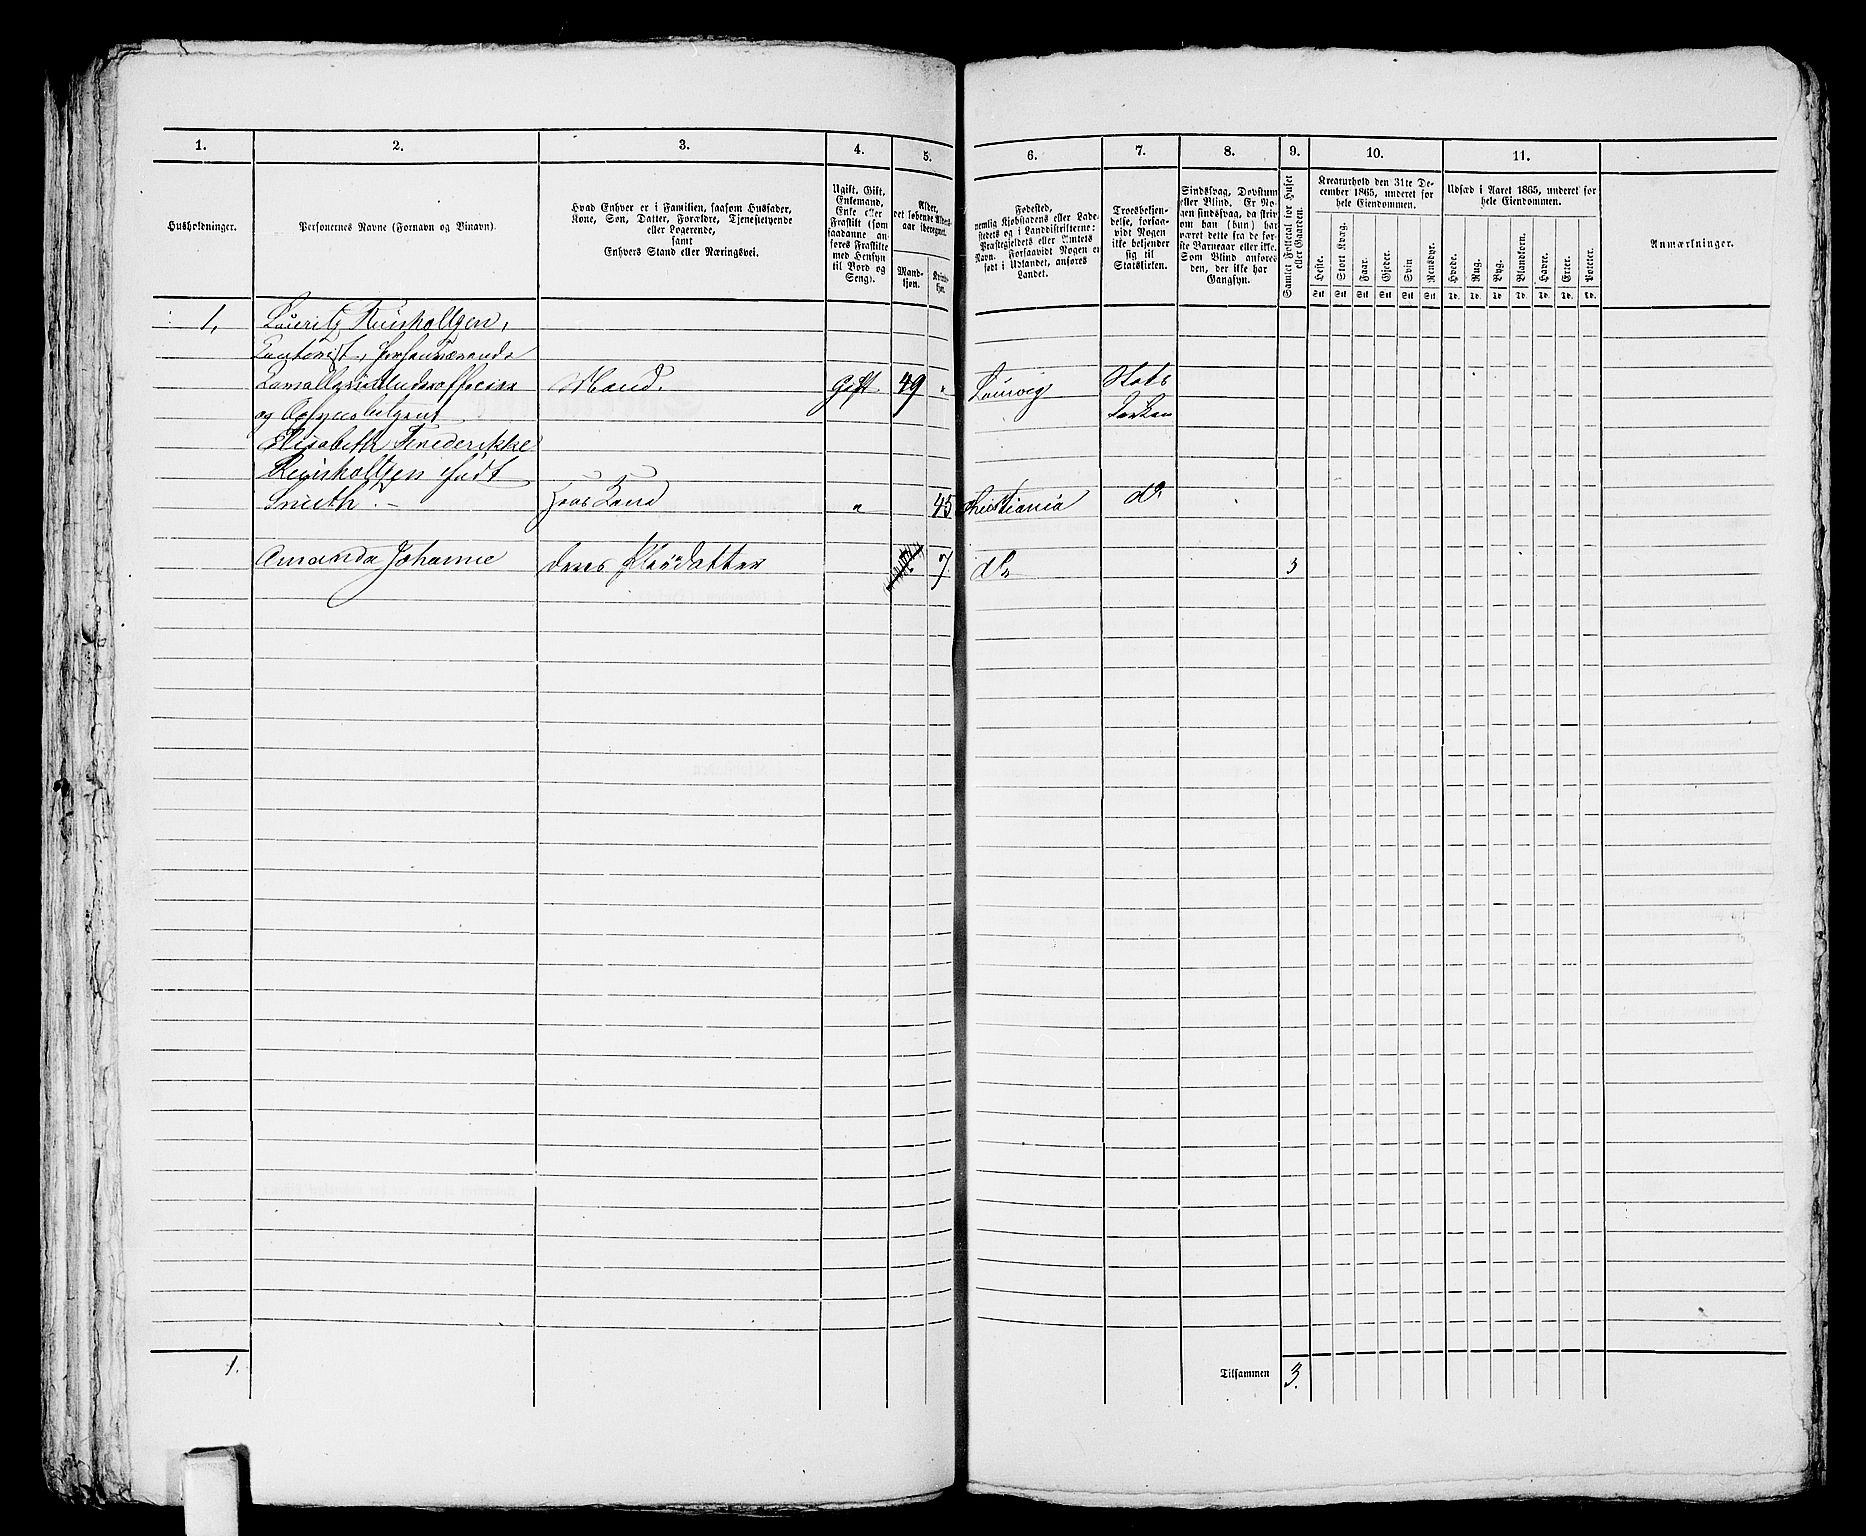 1. 2. 3. 4. 5. 6. 7. 8. 9. 10. 11.
Husholdninger.
Personernes Navne (Fornavn og Binavn).
Hvad Enhver er i Familien, saasom Husfader,
Kone, Søn, Datter, Forældre, Tjenestetyende
eller Logerende,
samt
Enhvers Stand eller Næringsvei.
Ugift, Gift,
Enkemand,
Enke eller
Fraskilt (som
saadanne an-
føres Fraskilte
med Hensyn
til Bord og
Seng).
Alder,
det løbende Alders-
aar iberegnet.
Mand-
kjøn.
Kvinde-
kjøn.
Fødested,
nemlig Kjøbstadens eller Lade-
stedets og i Landdistrikterne:
Præstegjeldets eller Amtets
Navn. Forsaavidt Nogen er
født i Udlandet, anføres
Landet.
Troesbekjen-
delse, forsaa-
vidt Nogen
ikke bekjender
sig til
Statskirken.
Sindssvag, Døvstum
eller Blind. Er No-
gen sindssvag, da skriv
om han (hun) har
været dette fra de før-
ste Barneaar eller ikke.
Som Blind anføres
den, der ikke har
Gangsyn.
Samlet Folketal for Huset
eller Gaarden.
Kreaturhold den 31te De-
cember 1865, underet for
hele Eiendommen.
Heste. Stort Kvæg. Faar. Gjeder. Svin Rensdyr.
Stk Stk Stk Stk Stk Stk
Udsæd i Aaret 1865, underet for
hele Eiendommen.
Hvede. Rug. Byg. Blandkorn. Havre. Erter. Poteter.
Td. Td. Td Td. Td. Td. Td.
Anmærkninger.
1, Lauritz
Mand. Gift. 49 " Laurvig Stats
og
Elisabeth Frederikke
født
Smith. – Hans Kone " 45 Christiania do
Amanda Johanne deres Pleiedatter 7. do 3
1. Tilsammen 3.